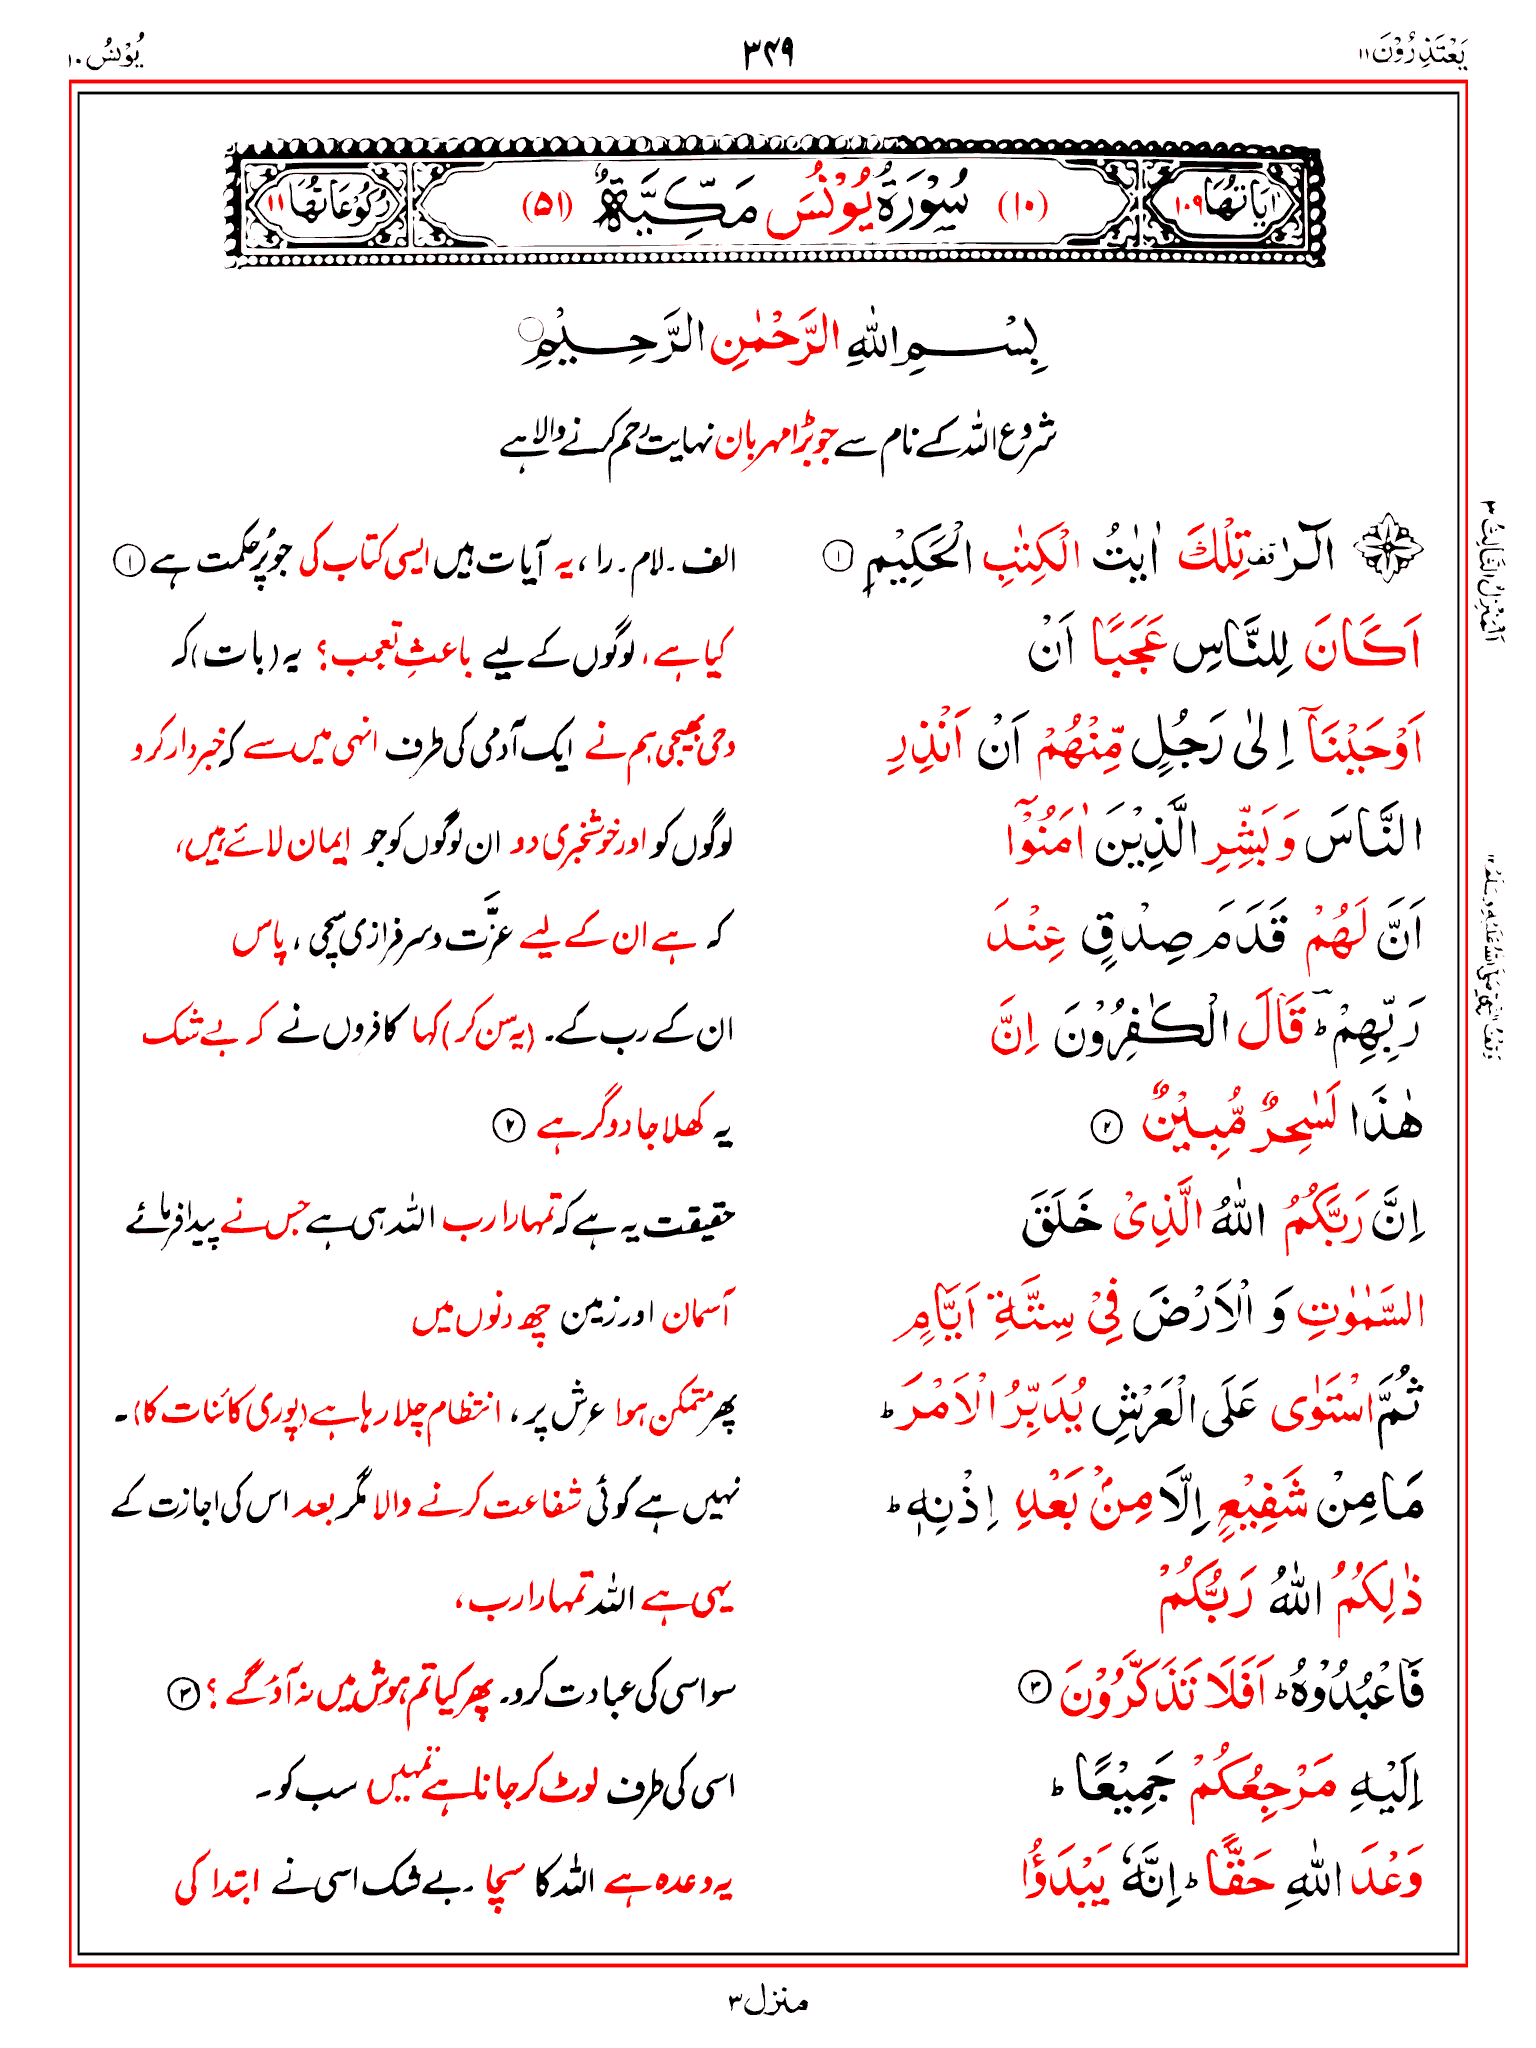 يَعْتَذِرُوْنَ ١١
٣٤٩
يُوْنُسُ ١٠
اٰيَاتُهَا ١٠٩
(١٠) سُوْرَةُ يُوْنُسَ مَكِّيَّةٌ (٥١)
رُكُوْعَاتُهَا ١١
بِسْمِ اللّٰهِ الرَّحْمٰنِ الرَّحِيْمِ
شروع اللہ کے نام سے جو بڑا مہربان نہایت رحم کرنے والا ہے
الٓرٰ قف تِلْكَ اٰيٰتُ الْكِتٰبِ الْحَكِيْمِ ①
الف۔ لام۔ را، یہ آیات ہیں ایسی کتاب کی جو پُر حکمت ہے ①
اَكَانَ لِلنَّاسِ عَجَبًا اَنْ
کیا ہے، لوگوں کے لیے باعثِ تعجب؟ یہ (بات) کہ
اَوْحَيْنَآ اِلٰى رَجُلٍ مِّنْهُمْ اَنْ اَنْذِرِ
وحی بھیجی ہم نے ایک آدمی کی طرف انہی میں سے کہ خبردار کرو
النَّاسَ وَبَشِّرِ الَّذِيْنَ اٰمَنُوْٓا
لوگوں کو اور خوشخبری دو ان لوگوں کو جو ایمان لائے ہیں،
اَنَّ لَهُمْ قَدَمَ صِدْقٍ عِنْدَ
کہ ہے ان کے لیے عزّت و سرفرازی سچی، پاس
رَبِّهِمْ ؕ قَالَ الْكٰفِرُوْنَ اِنَّ
ان کے رب کے۔ (یہ سن کر) کہا کافروں نے کہ بے شک
هٰذَا لَسٰحِرٌ مُّبِيْنٌ ②
یہ کھلا جادوگر ہے ②
اِنَّ رَبَّكُمُ اللّٰهُ الَّذِيْ خَلَقَ
حقیقت یہ ہے کہ تمہارا رب اللہ ہی ہے جس نے پیدا فرمائے
السَّمٰوٰتِ وَ الْاَرْضَ فِيْ سِتَّةِ اَيَّامٍ
آسمان اور زمین چھ دنوں میں
ثُمَّ اسْتَوٰى عَلَى الْعَرْشِ يُدَبِّرُ الْاَمْرَ ؕ
پھر متمکن ہوا عرش پر، انتظام چلا رہا ہے (پوری کائنات کا)۔
مَا مِنْ شَفِيْعٍ اِلَّا مِنْۢ بَعْدِ اِذْنِهٖ ؕ
نہیں ہے کوئی شفاعت کرنے والا مگر بعد اس کی اجازت کے
ذٰلِكُمُ اللّٰهُ رَبُّكُمْ
یہی ہے اللہ تمہارا رب،
فَاعْبُدُوْهُ ؕ اَفَلَا تَذَكَّرُوْنَ ③
سو اسی کی عبادت کرو۔ پھر کیا تم ہوش میں نہ آؤ گے؟ ③
اِلَيْهِ مَرْجِعُكُمْ جَمِيْعًا ؕ
اسی کی طرف لوٹ کر جانا ہے تمہیں سب کو۔
وَعْدَ اللّٰهِ حَقًّا ؕ اِنَّهٗ يَبْدَؤُا
یہ وعدہ ہے اللہ کا سچا۔ بے شک اسی نے ابتدا کی
اَلْمَنْزِلُ الثَّالِثُ ٣
منزل ٣